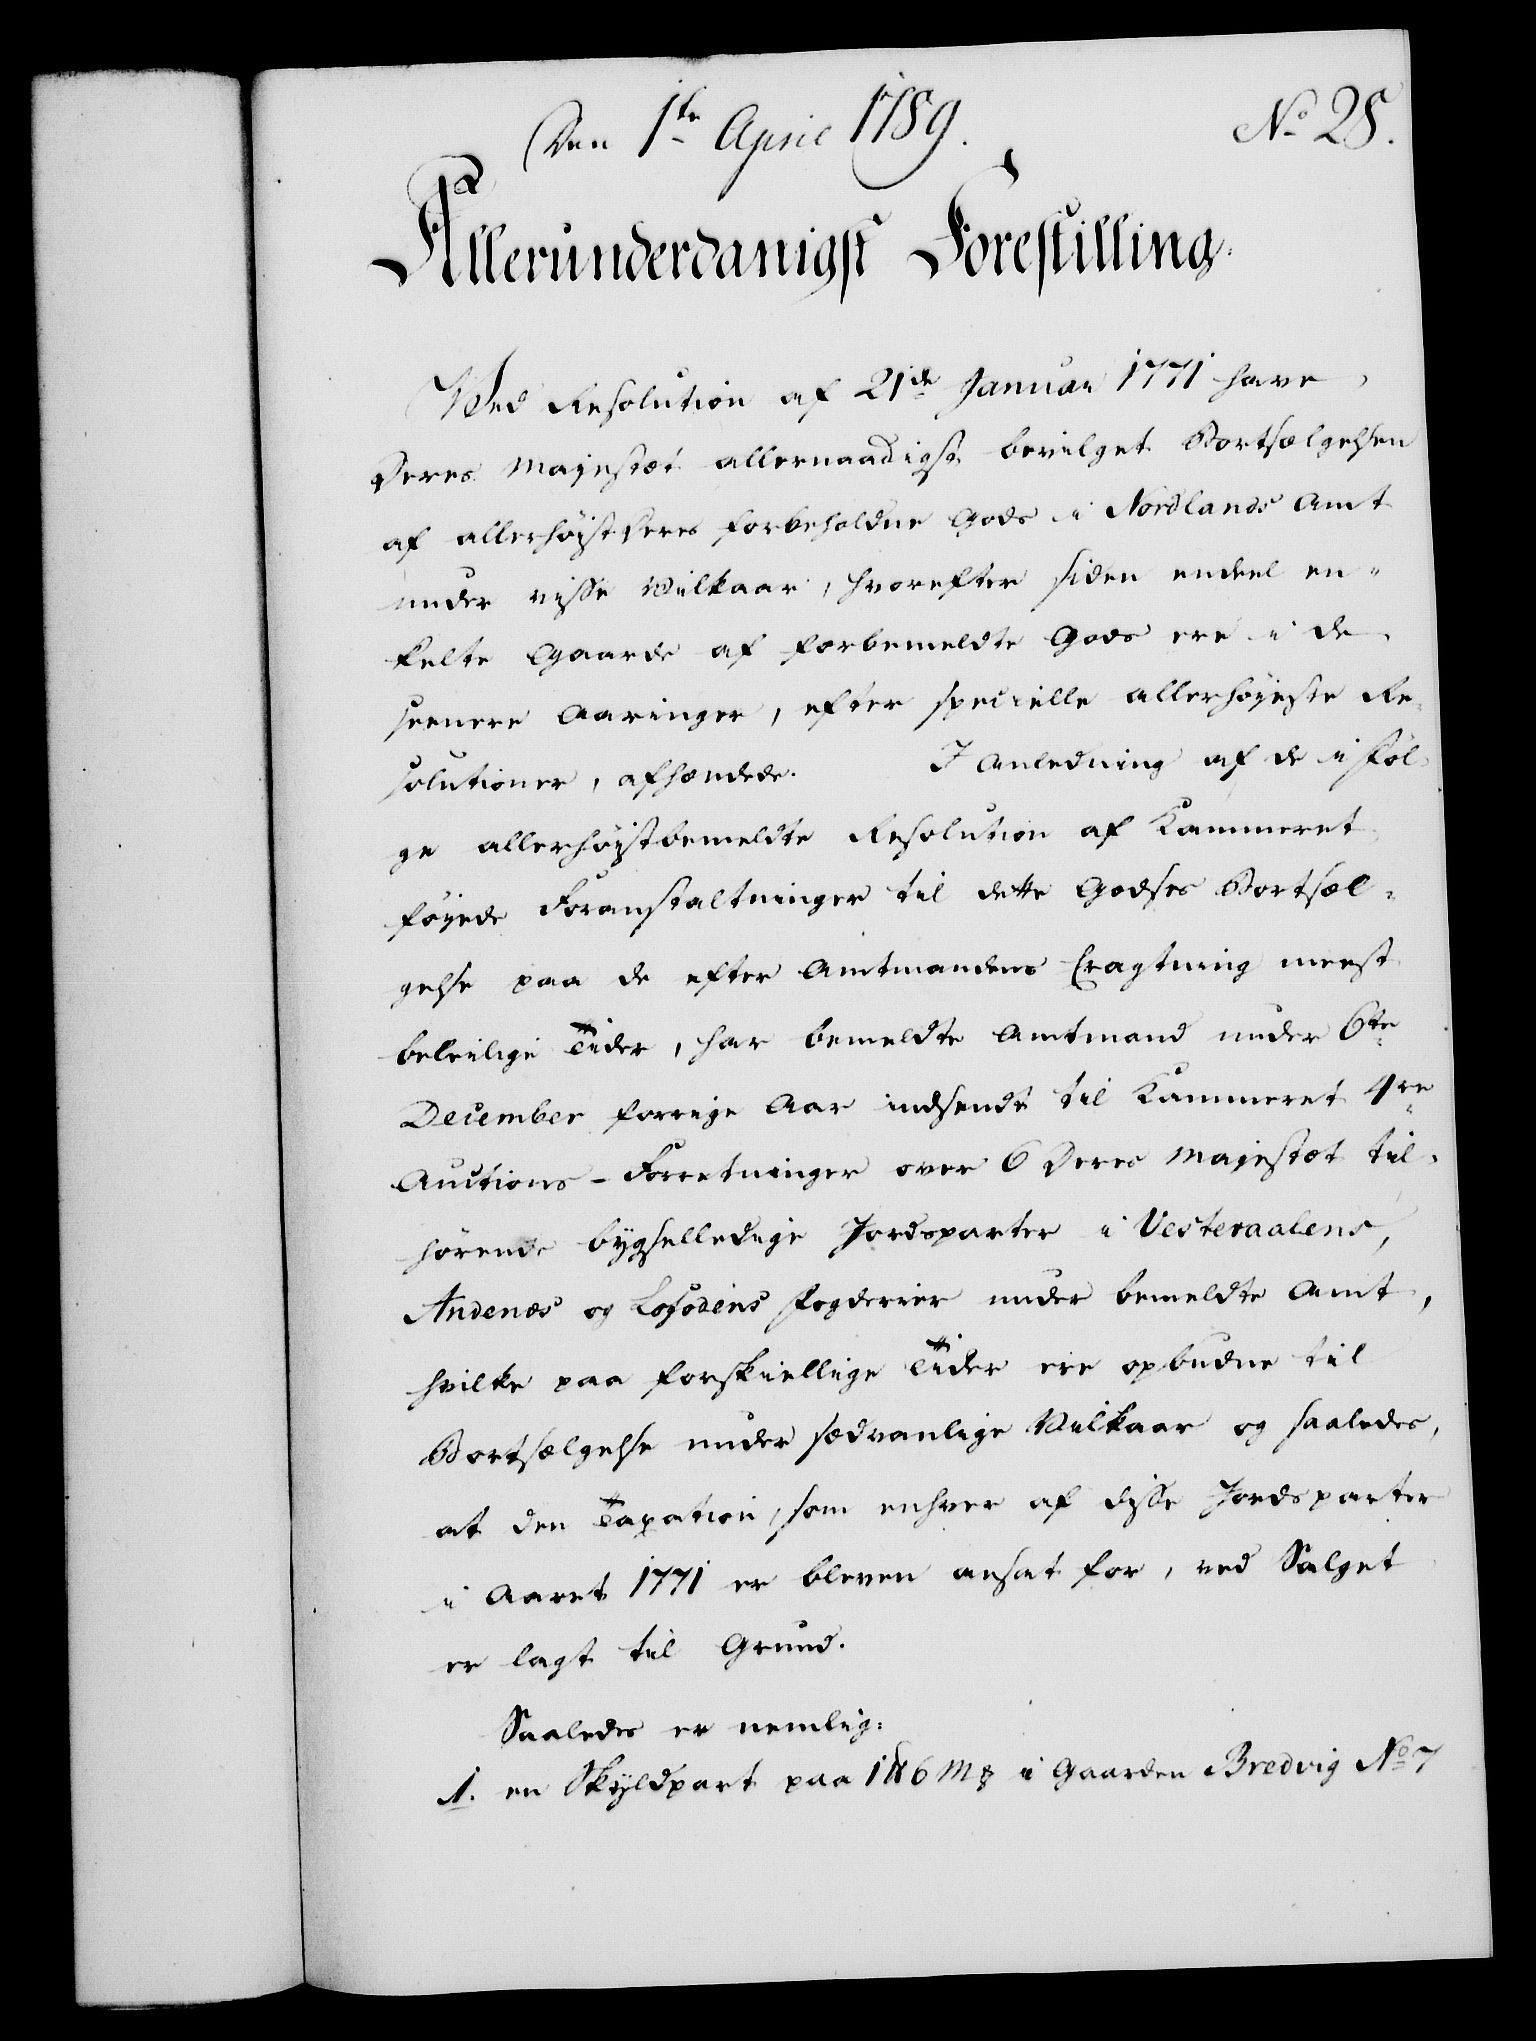 Den 1ste April 1789.
No 28.
Allerunderdanigst Forestilling.
Ved Resolution af 21de Januar 1771 have
Deres Majestæt allernaadigst bevilget Bortsælgelsen
af allerhøistderes forbeholdne Gods i Nordlands Amt
under visse Vilkaar, hvorefter siden endeel en-
kelte Gaarde af forbemeldte Gods ere i de
seenere Aaringer, efter specielle allerhøieste Re-
solutioner, afhændede. I Anledning af de i føl-
ge allerhøistbemeldte Resolution af Kammeret
føiede Foranstaltninger til dette Godses Bortsæl-
gelse paa de efter Amtmandens Eragtning meest
beleilige Tider, har bemeldte Amtmand under 6te
December forrige Aar indsendt til Kammeret 4re
Auctions-Forretninger over 6 Deres Majestæt til-
hørende bygselledige Jordsparter i Vesteraalens,
Andenes og Lofodens Fogderier under bemeldte Amt,
hvilke paa forskiellige Tider ere opbudne til
Bortsælgelse under sædvanlige Vilkaar og saaledes,
at den Taxation, som enhver af disse Jordsparter
i Aaret 1771 er bleven ansat for, ved Salget
er lagt til Grund.
Saaledes er nemlig:
1. en Skyldpart paa 1 6 i Gaarden Bredvig No 7